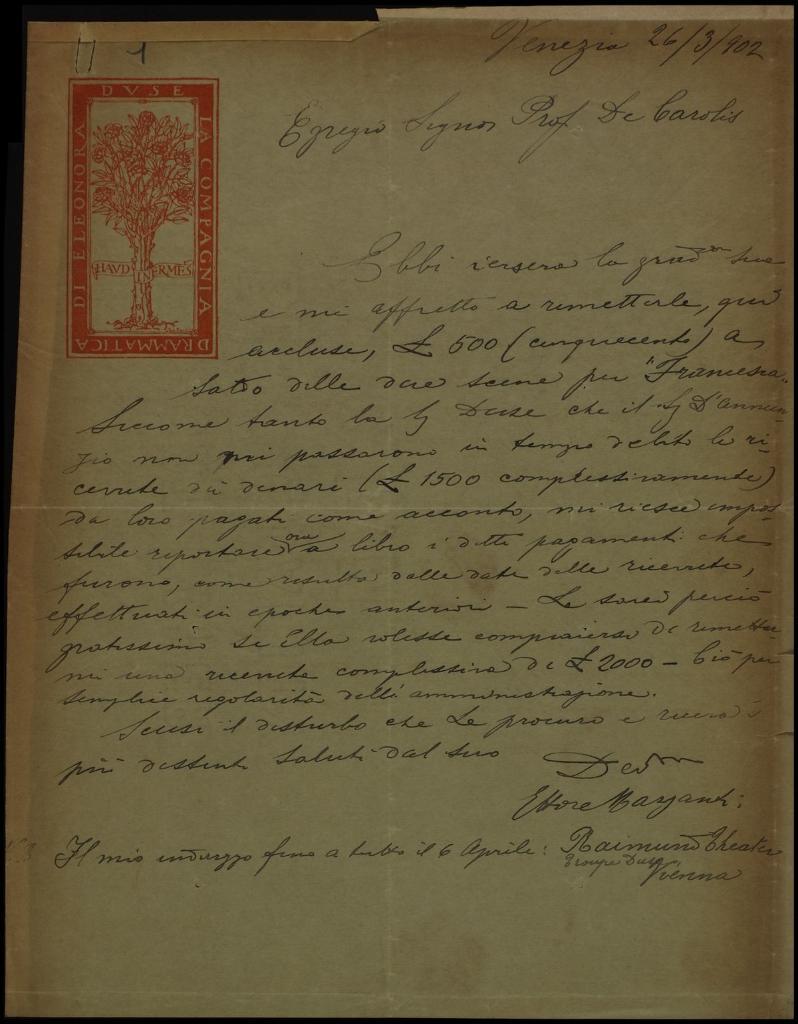 1
Venezia 26/3/902
DI ELEONORA DVSE LA COMPAGNIA DRAMMATICA
HAVD INERMES
Egregio Signor Prof. De Carolis
Ebbi iersera la grad.ma sua
e mi affretto a rimetterle, qui
accluse, £ 500 (cinquecento) a
saldo delle due scene per "Francesca"
Siccome tanto la Sg Duse che il Sg D'Annun-
zio non mi passarono in tempo debito le ri-
cevute dei denari (£ 1500 complessivamente)
da loro pagati come acconto, mi riesce impos-
sibile riportare ora a libro i detti pagamenti che
furono, come risulta dalle date delle ricevute,
effettuati in epoche anteriori – Le sarei perciò
gratissimo se Ella volesse compiacersi di rimetter-
mi una ricevuta complessiva di £ 2000 – Ciò per
semplice regolarità dell'amministrazione.
Scusi il disturbo che Le procuro e riceva i
più distinti saluti dal suo
Dev.mo
Ettore
Il mio indirizzo fino a tutto il 6 Aprile: Raimund Theater
Troupe Duse
Vienna